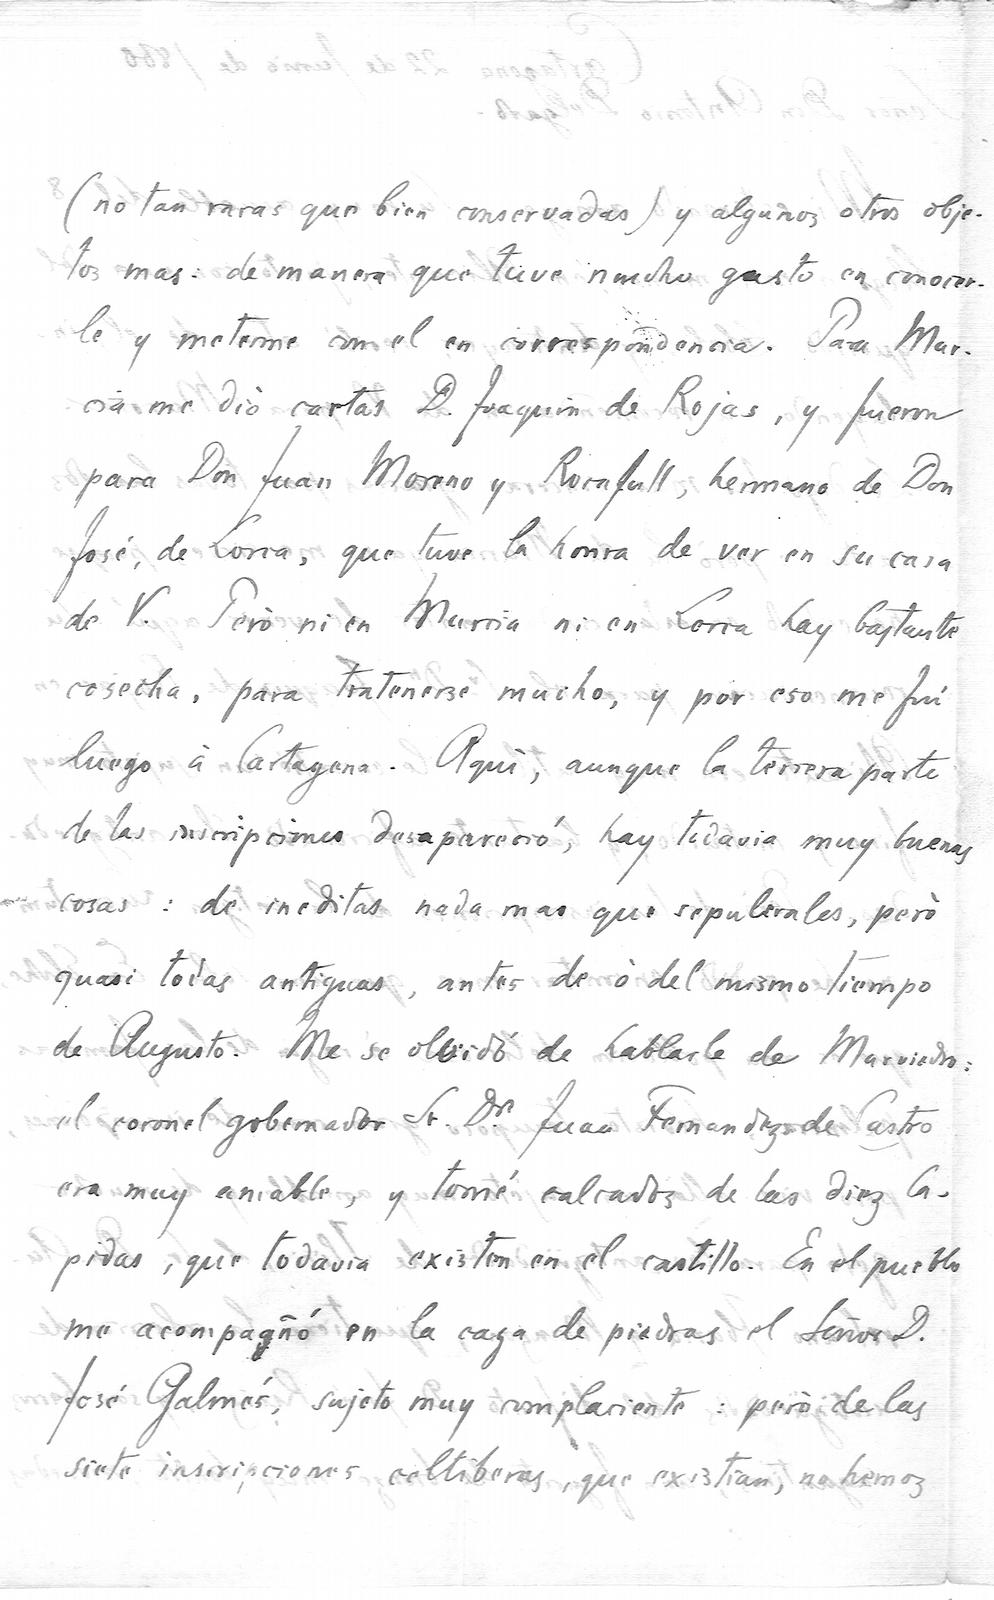 (no tan raras que bien conservadas) y algunos otros obje-
tos mas: de manera que tuve mucho gusto en conocer-
le y meterme con el en correspondencia. Para Mur-
cia me diò cartas D. Joaquin de Rojas, y fueron
para Don Juan Moreno y Rocafull, hermano de Don
José, de Lorca, que tuve la honra de ver en su casa
de V. Però ni en Murcia ni en Lorca hay bastante
cosecha, para tratenerse mucho, y por eso me fui
luego à Cartagena. Aquì, aunque la tercera parte
de las inscripciones desapareció, hay todavia muy buenas
cosas: de ineditas nada mas que sepulcrales, però
quasi todas antiguas, antes de ò del mismo tiempo
de Augusto. Me se olvidó de hablarle de Murviedro:
el coronel gobernador Sr. Dn Juan Fernandez de Castro
era muy amable, y tomé calcados de las diez la-
pidas, que todavia existen en el castillo. En el pueblo
me acompagñó en la caza de piedras el Señor D.
José Galmés, sujeto muy complaciente: però de las
siete inscripciones celtiberas, que existian, no hemos
Cartagena 22 de Junio de 1860
Señor Don Antonio Delgado.